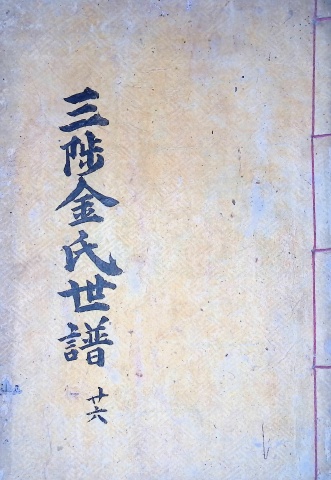 三陟金氏世譜
廿六